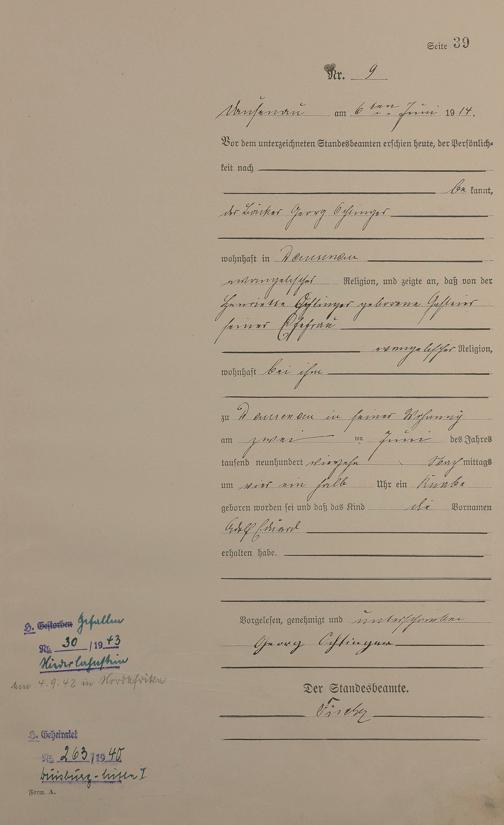 Seite 39
Nr. 9
Dausenau am 6ten Juni 1914.
Vor dem unterzeichneten Standesbeamten erschien heute, der Persönlich-
keit nach
be kannt,
der Bäcker Georg
wohnhaft in Dausenau
evangelischer Religion, und zeigte an, daß von der
Henriette geborene
seiner Ehefrau
evangelischer Religion,
wohnhaft bei ihm
zu Dausenau in seiner Wohnung
am zwei ten Juni des Jahres
tausend neunhundert vierzehn Nach mittags
um vier ein halb Uhr ein Knabe
geboren worden sei und daß das Kind die Vornamen
Adolf Eduard
erhalten habe.
Vorgelesen, genehmigt und unterschrieben
Georg
Der Standesbeamte.
H. Gestorben Gefallen
Nr. 30 /1943
Niederlahnstein
am 4.9.42 in Nordafrika
H. Geheiratet
Nr. 263/1940
Duisburg- I
Form. A.